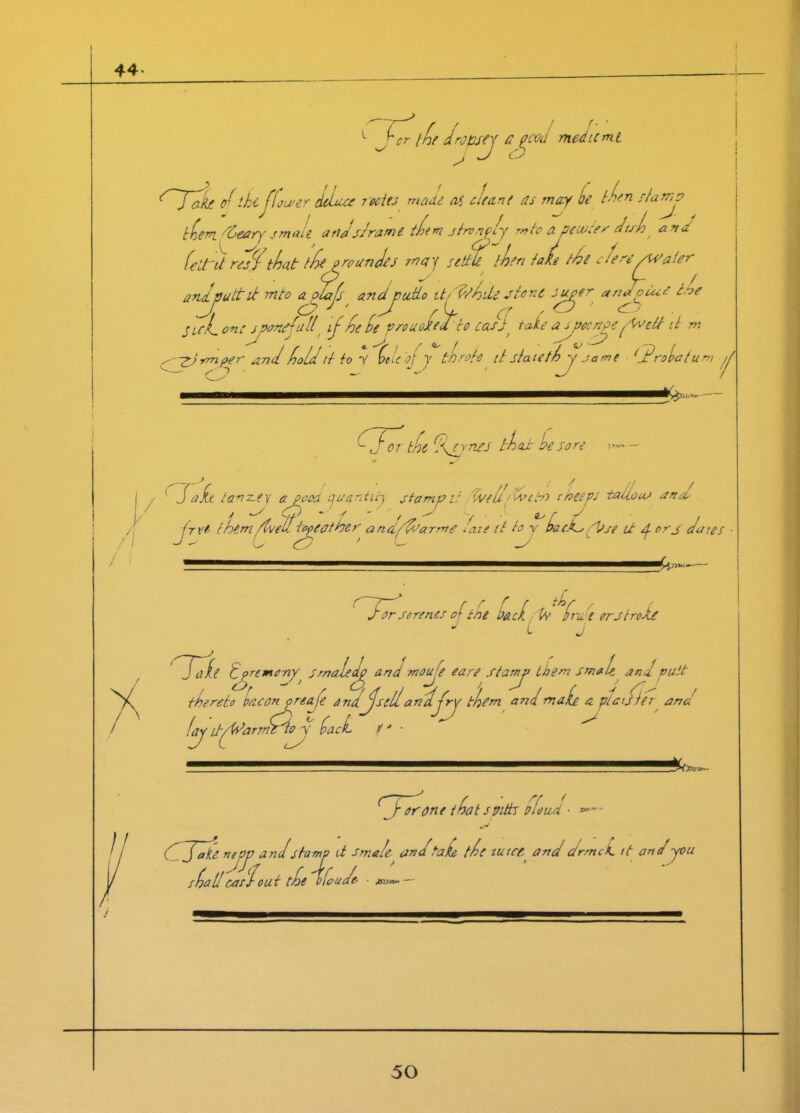 44.
For the dropsey a good medicine
Take of the flower deluce rootes made as cleane as may be then stamp
them veary smale and straine them strongly into a pewter dish and
lett it rest that the groundes may settle then take the clere water
and putt it into a glass and putto it white stone suger and giue the
sick one sponefull if he be prouoked to cast take a spoonge wett it in
vineger and hold it to yͤ hole of yͤ throte it staieth yͤ same. Probatum
For the Reynes that be sore
Take tanzey a good quantity stamp it well with sheeps tallow and
frye them well togeather and warme laie it to yͤ back vse it 4 or 5 daies.
For sorenes of the back wᵗʰ bruse or stroke
Take Egremony smaledg and mouse eare stamp them smale and putt
thereto bacon grease and fsell and fry them and make a plaister and
lay it warme to yͤ back
For one that spitts bloud.
Take nepp and stamp it smale and take the iuice and drinck it and you
shall cast out the bloude.
50